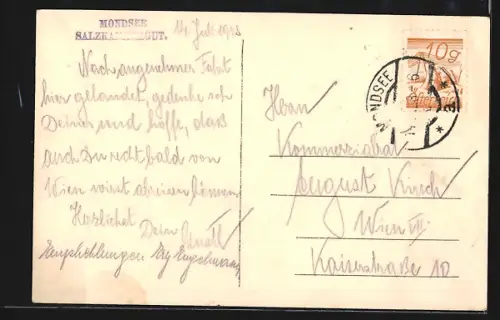 MONDSEE
SALZKAMMERGUT.
14. Juli
Nach angenehmer Fahrt
hier gelandet, gedenke ich
Deiner und hoffe, daß
auch Du recht bald von
Wien wirst abreisen können
Herzlichst
Dein
Empfehlungen
Herrn
Kommerzialrat
August Kirsch
Wien VII.
Kaiserstraße 10
10g
MONDSEE